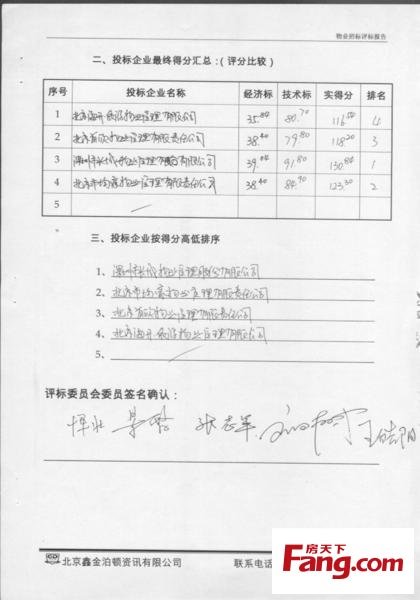 物业招标评标报告
二、投标企业最终得分汇总:(评分比较)
序号 投标企业名称 经济标 技术标 实得分 排名
1 物业管理有限公司 35.84 80.70 116.54 4
2 物业管理有限责任公司 38.40 79.80 118.20 3
3 深圳市长城物业管理股份有限公司 39.04 91.80 130.84 1
4 北京市均豪物业管理有限责任公司 38.40 84.90 123.30 2
5
三、投标企业按得分高低排序
1、深圳市长城物业管理股份有限公司
2、北京市均豪物业管理有限责任公司
3、物业管理有限公司
4、物业管理有限公司
5、
评标委员会委员签名确认:
张志军 王皓阳
北京鑫金泊顿资讯有限公司 联系电话
房天下
Fang.com